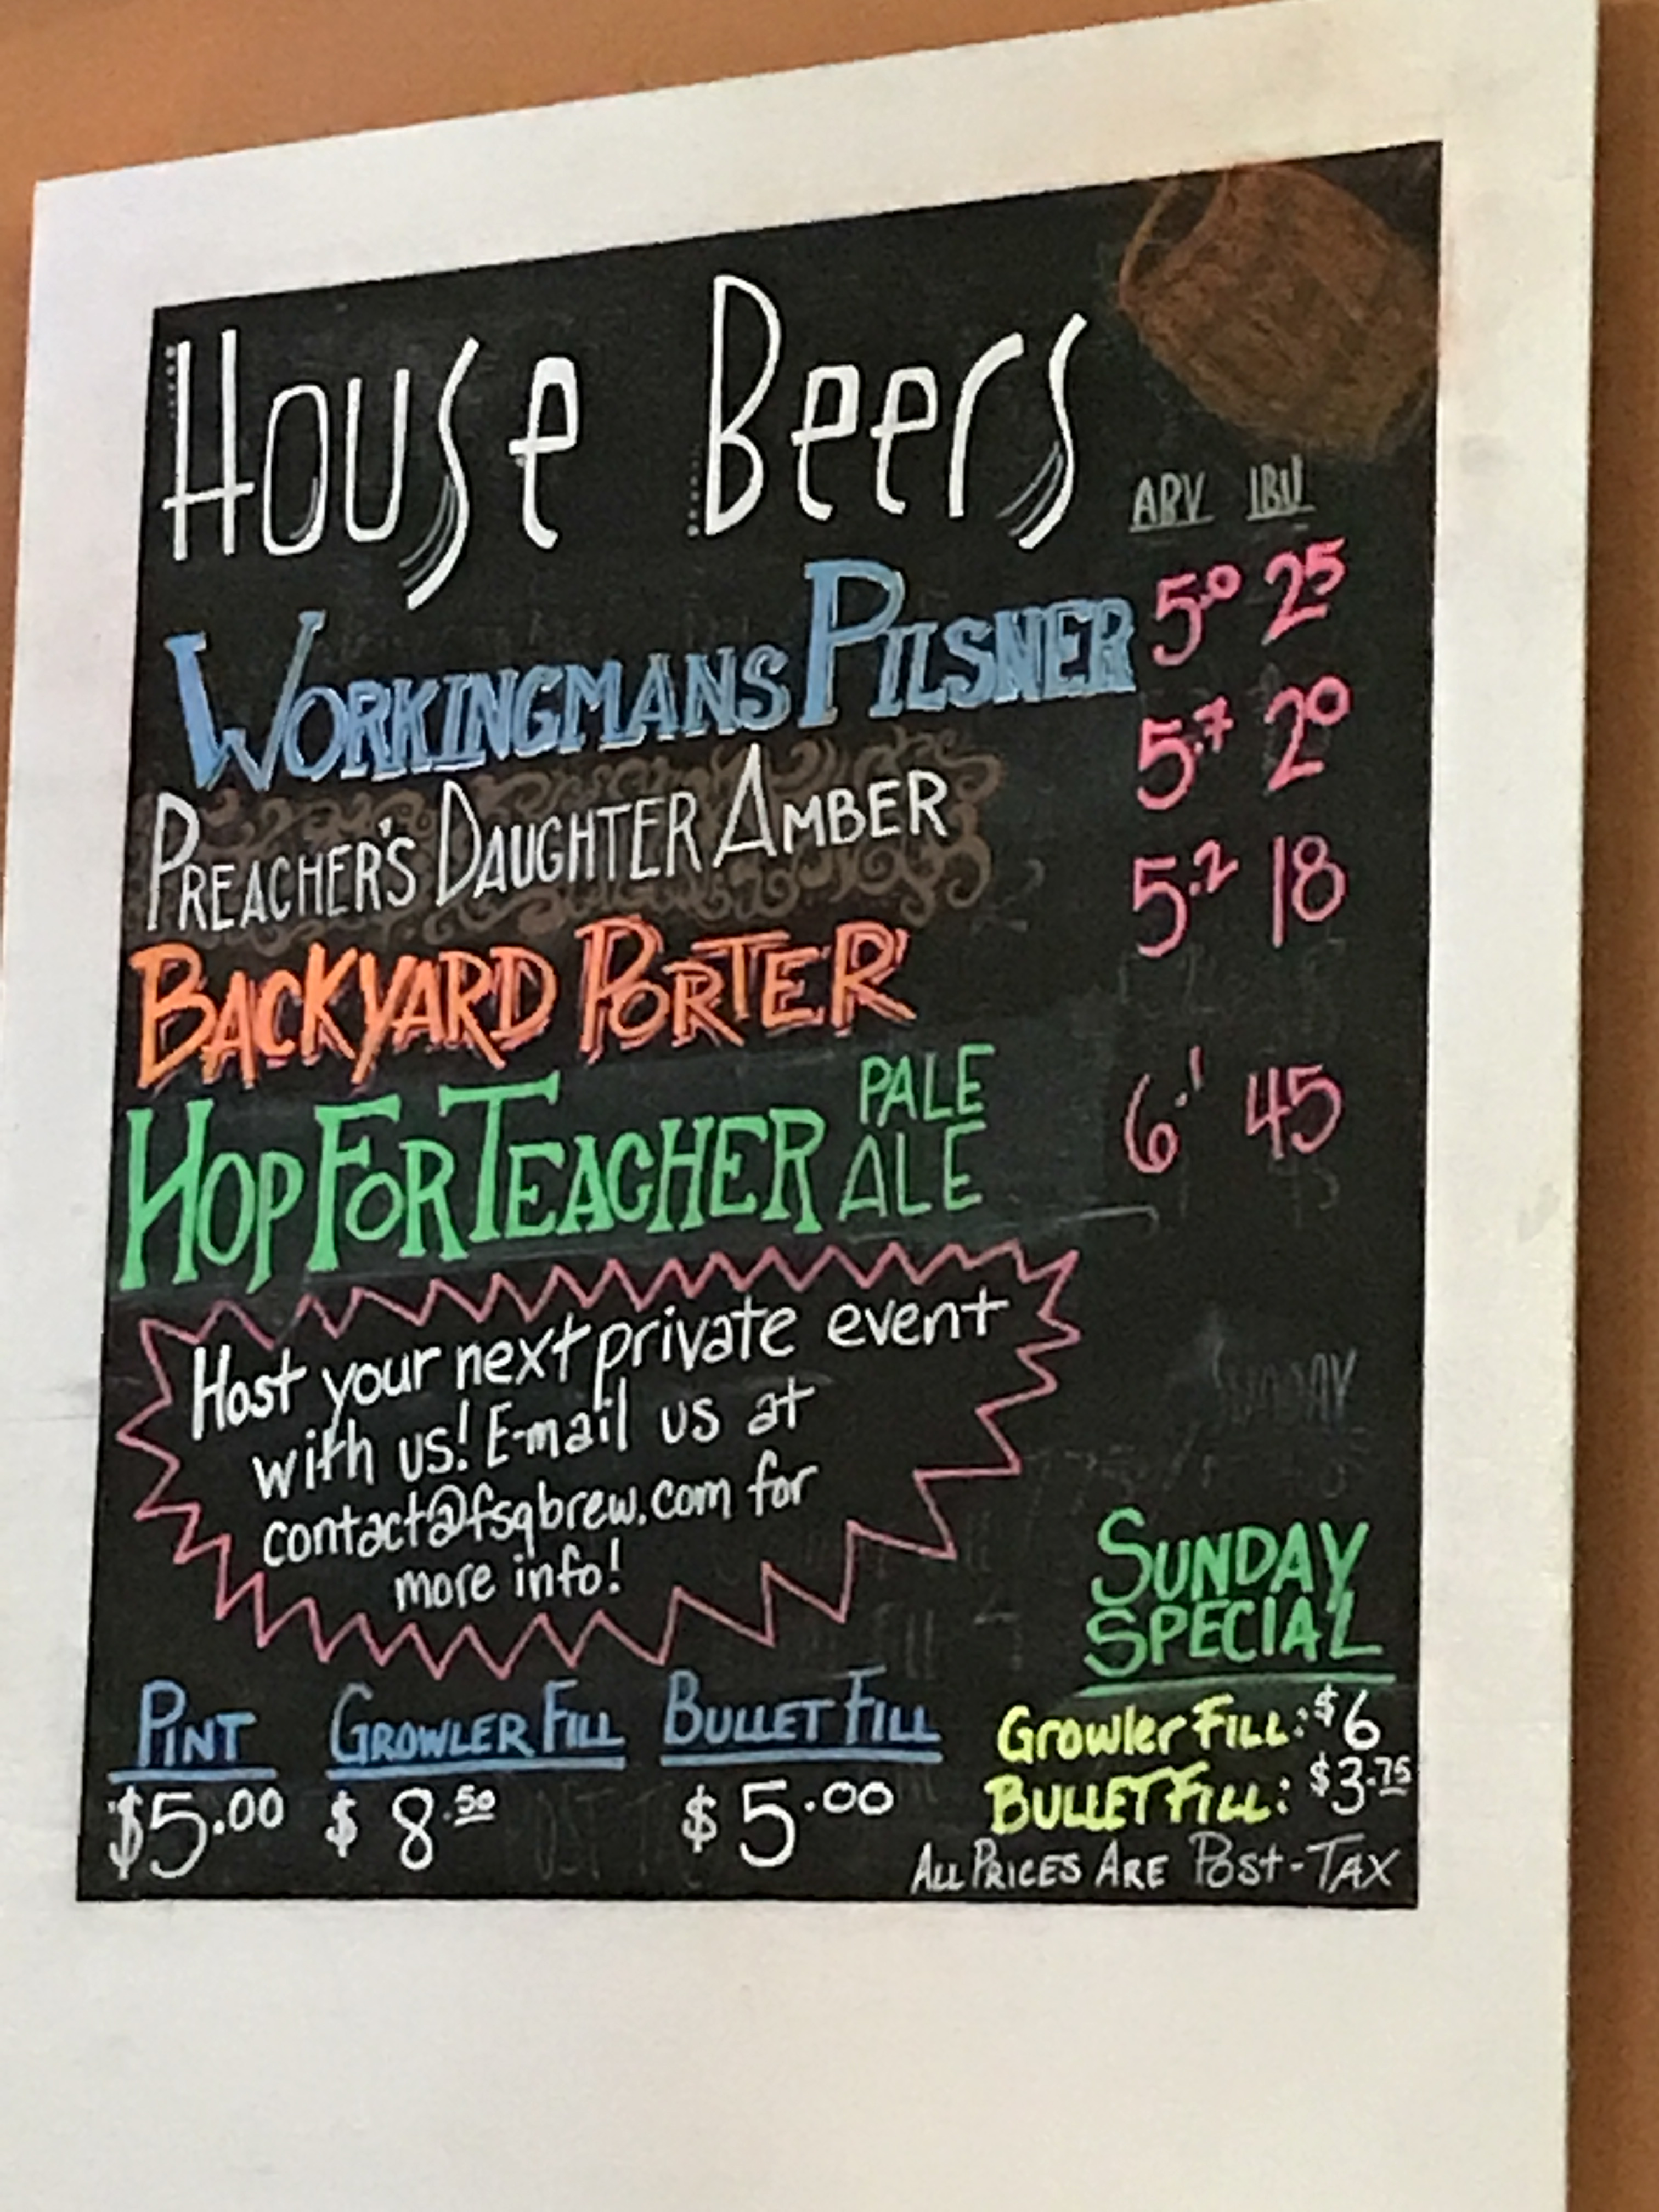 House Beers
ABV IBU
WORKINGMANS PILSNER 5.0 25
PREACHER'S DAUGHTER AMBER 5.7 20
BACKYARD PORTER 5.2 18
HOP FOR TEACHER PALE ALE 6.1 45
Host your next private event
with us! E-mail us at
contact@fsqbrew.com for
more info!
SUNDAY
SPECIAL
Growler Fill: $6
BULLET Fill: $3.75
PINT GROWLER FILL BULLET FILL
$5.00 $8.50 $5.00
ALL PRICES ARE POST-TAX